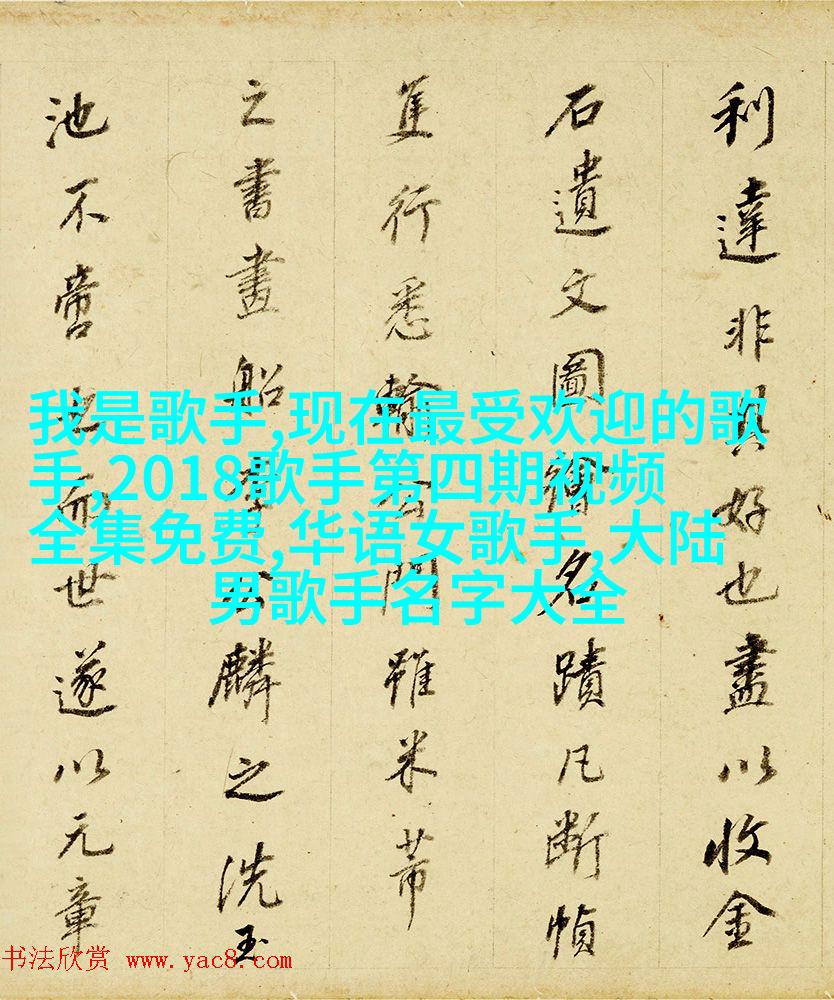 利達非其好也盡以收金
石遺文圖繪名蹟凡斷幀
隻行悉輸公門雖米芾
之書畫船李公麟之洗玉
池不啻也而世遂以元章
我是歌手,现在最受欢迎的歌
手,2018歌手第四期视频
全集免费,华语女歌手,大陆
男歌手名字大全
书法欣赏 www.yac8.com